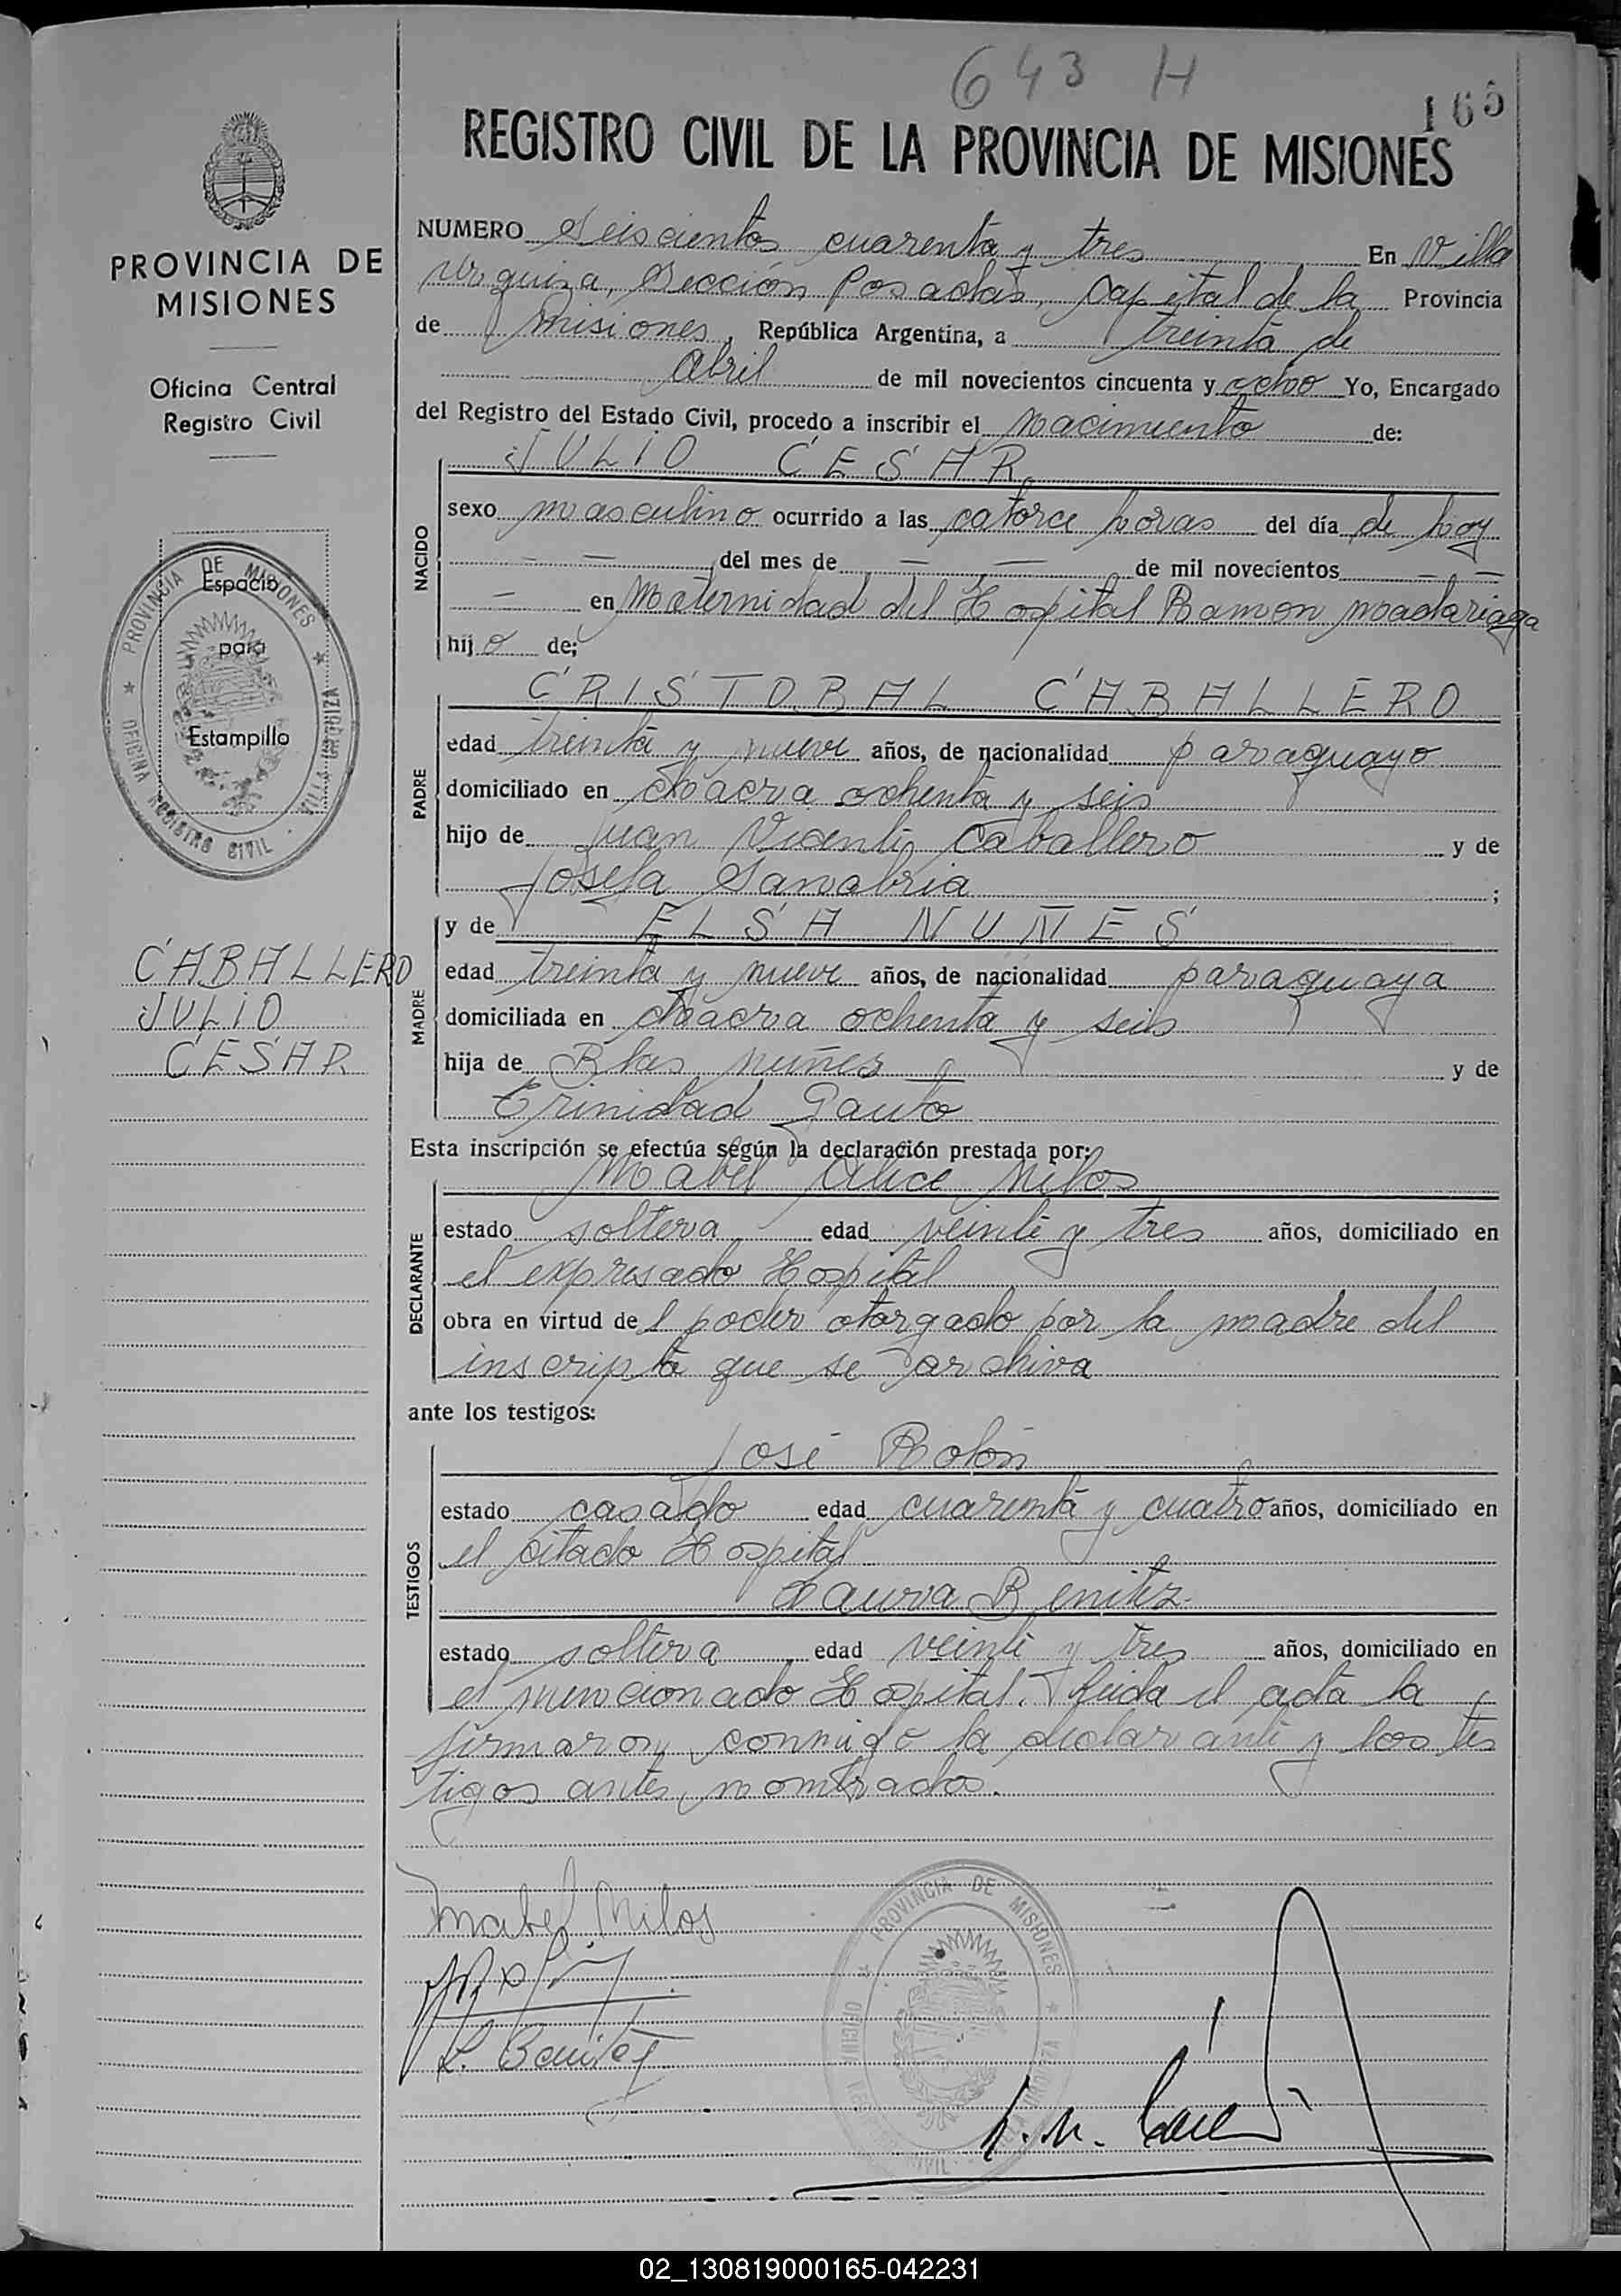 643 H
165
REGISTRO CIVIL DE LA PROVINCIA DE MISIONES
PROVINCIA DE
MISIONES
Oficina Central
Registro Civil
PROVINCIA DE MISIONES
OFICINA REGISTRO CIVIL
VILLA URQUIZA
Espacio
para
Estampillo
CABALLERO
JULIO
CESAR
NUMERO Seiscientos cuarenta y tres En Villa
Urquiza, Sección Posadas, Capital de la Provincia
de Misiones, República Argentina, a treinta de
Abril de mil novecientos cincuenta y ocho Yo, Encargado
del Registro del Estado Civil, procedo a inscribir el nacimiento de:
NACIDO
JULIO CESAR
sexo masculino ocurrido a las catorce horas del día de hoy
— — del mes de — — de mil novecientos — —
— en Maternidad del Hospital Ramon Madariaga
hijo de;
PADRE
CRISTOBAL CABALLERO
edad treinta y nueve años, de nacionalidad paraguayo
domiciliado en chacra ochenta y seis
hijo de Juan Vicente Caballero y de
Josefa Sanabria ;
MADRE
y de ELSA NUÑES
edad treinta y nueve años, de nacionalidad paraguaya
domiciliada en chacra ochenta y seis
hija de Blas Nuñes y de
Trinidad Gauto
Esta inscripción se efectúa según la declaración prestada por:
DECLARANTE
Mabel Alice Milos
estado soltera edad veinte y tres años, domiciliado en
el expresado Hospital
obra en virtud del poder otorgado por la madre del
inscripto que se archiva
ante los testigos:
TESTIGOS
José Rolón
estado casado edad cuarenta y cuatro años, domiciliado en
el citado Hospital
Laura Benitez.
estado soltera edad veinte y tres años, domiciliado en
el mencionado Hospital. Leida el acta la
firmaron conmigo la declarante y los tes
tigos antes nombrados.
Mabel Milos
L. Benitez
PROVINCIA DE MISIONES
02_130819000165-042231